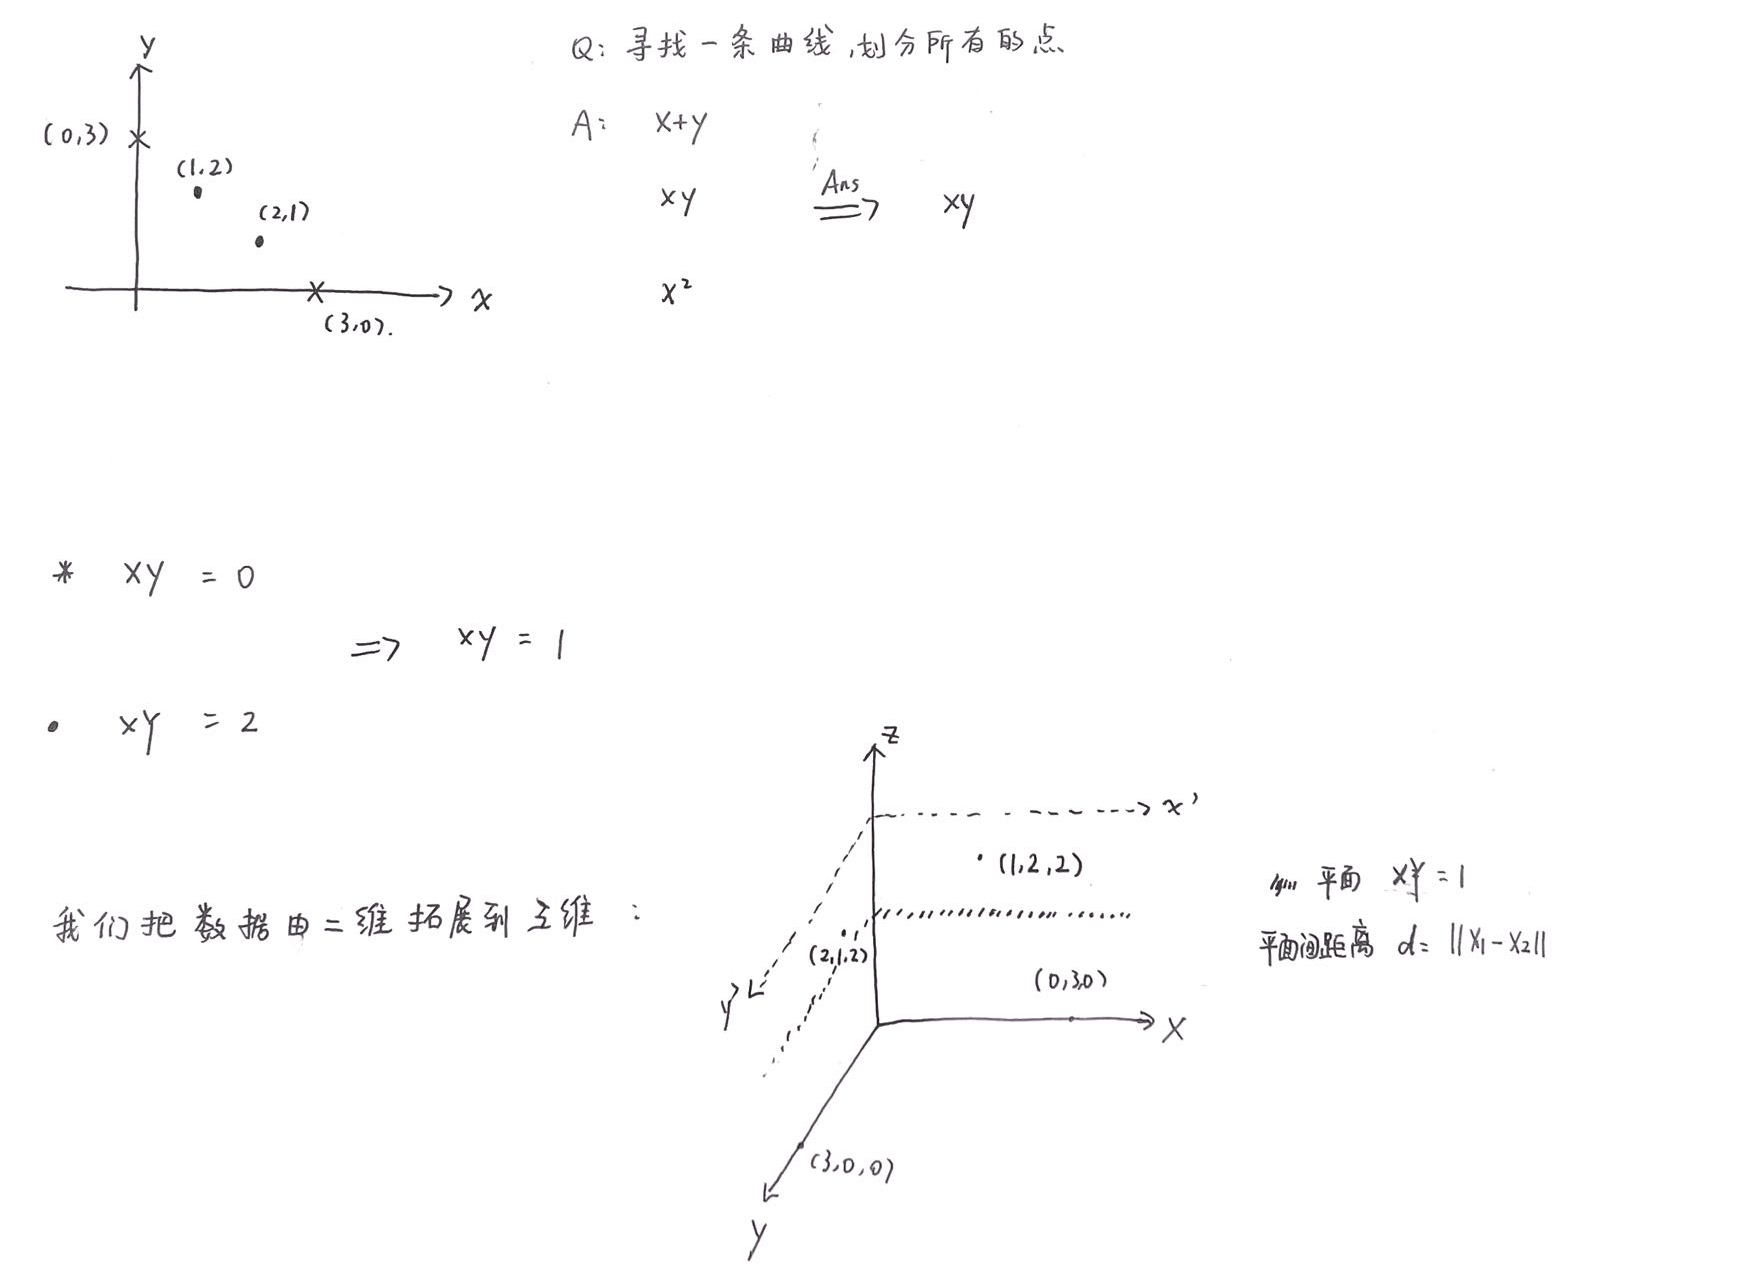 y
(0,3)
(1,2)
(2,1)
x
(3,0).
Q: 寻找一条曲线,划分所有的点
A: x+y
xy
x²
Ans
⇒ xy
* xy = 0
⇒ xy = 1
• xy = 2
我们把数据由二维拓展到三维:
z
x'
(1,2,2)
(2,1,2)
y'
(0,3,0)
x
(3,0,0)
y
平面 xy = 1
平面间距离 d= ||x₁-x₂||